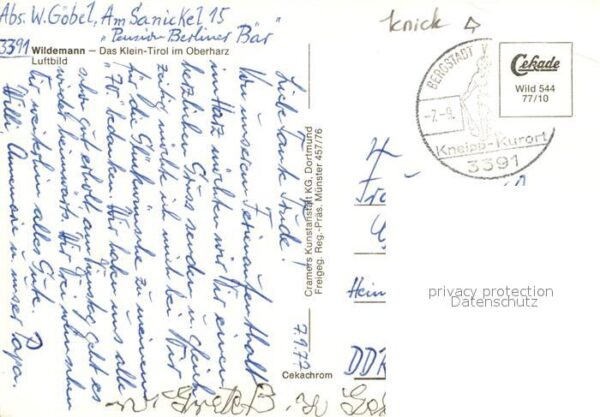 Abs. W. Göbel, Am Sanickel 15
"Pension Berliner Bär"
3391
Wildemann – Das Klein-Tirol im Oberharz
Luftbild
knick
BERGSTADT
-7.-9.
Kneipp-Kurort
3391
Cekade
Wild 544
77/10
Liebe Tante Trude!
Von unserem Ferienaufenthalt
im Harz möchten wir Dir einen
herzlichen Gruss senden u. gleich-
zeitig möchte ich mich bei Dir
für die Glückwünsche zu meinem
"70" bedanken. Wir haben uns alle
sehr gut erholt, am Dienstag geht es
wieder heimwärts. Wir drei wünschen
Dir weiterhin alles Gute.
Willi, Annemarie u. unser Papa.
7.9.77
Cramers Kunstanstalt KG, Dortmund
Freigeg. Reg.-Präs. Münster 457/76
Cekachrom
Hein
DDR
privacy protection
Datenschutz